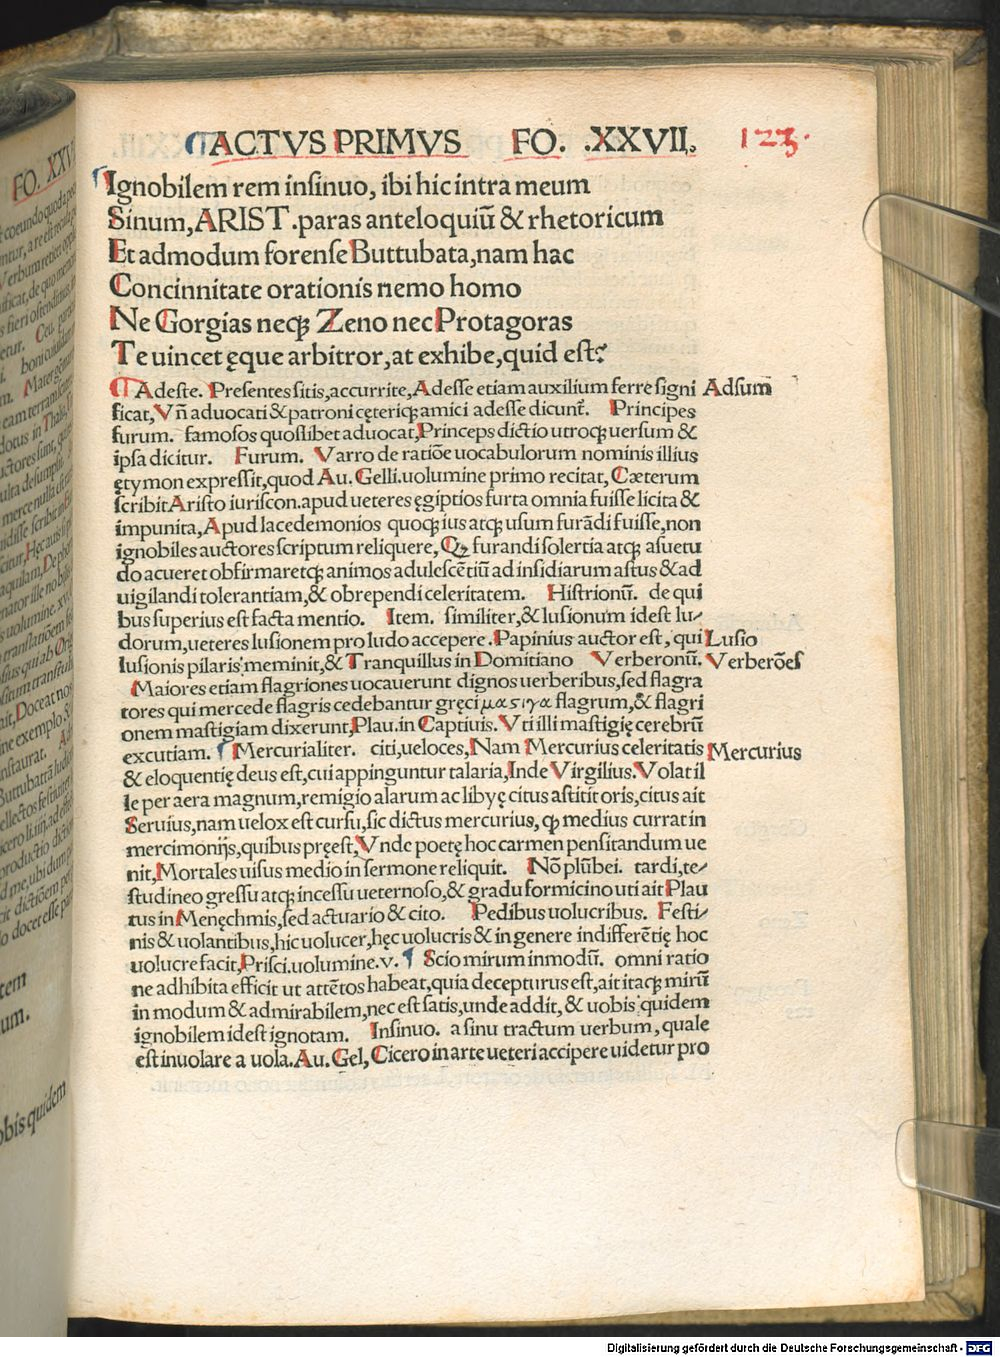 ACTVS PRIMVS FO. .XXVII. 123.
Ignobilem rem insinuo, ibi hic intra meum
Sinum, ARIST. paras anteloquiū & rhetoricum
Et admodum forense Buttubata, nam hac
Concinnitate orationis nemo homo
Ne Gorgias neqꝫ Zeno nec Protagoras
Te uincet ęque arbitror, at exhibe, quid est?
Adeste. Presentes sitis, accurrite, Adesse etiam auxilium ferre signi
Adsum
ficat, Vñ aduocati & patroni cęteriqꝫ amici adesse dicunt̄. Principes
furum. famosos quoslibet aduocat, Princeps dictio utroqꝫ uersum &
ipsa dicitur. Furum. Varro de ratiōe uocabulorum nominis illius
ętymon expressit, quod Au. Gelli. uolumine primo recitat, Cæterum
scribit Aristo iuriscon. apud ueteres ęgiptios furta omnia fuisse licita &
impunita, Apud lacedemonios quoqꝫ ius atqꝫ usum furādi fuisse, non
ignobiles auctores scriptum reliquere, Qꝫ furandi solertia atqꝫ asuetu
do acueret obfirmaretqꝫ animos adulescētiū ad insidiarum astus & ad
uigilandi tolerantiam, & obrependi celeritatem. Histrionū. de qui
bus superius est facta mentio. Item. similiter, & lusionum idest lu-
dorum, ueteres lusionem pro ludo accepere. Papinius auctor est, qui
Lusio
lusionis pilaris meminit, & Tranquillus in Domitiano Verberonū.
Verberōes
Maiores etiam flagriones uocauerunt dignos uerberibus, sed flagra
tores qui mercede flagris cedebantur gręci μαστιγα flagrum, & flagri
onem mastigiam dixerunt, Plau. in Captiuis. Vti illi mastigię cerebrū
excutiam. ¶ Mercurialiter. citi, ueloces, Nam Mercurius celeritatis
Mercurius
& eloquentię deus est, cui appinguntur talaria, Inde Virgilius. Volat il
le per aera magnum, remigio alarum ac libyę citus astitit oris, citus ait
Seruius, nam uelox est cursu, sic dictus mercurius, ꝙ medius currat in
mercimonijs, quibus pręest, Vnde poetę hoc carmen pensitandum ue
nit, Mortales uisus medio in sermone reliquit. Nō plūbei. tardi, te-
studineo gressu atqꝫ incessu ueternoso, & gradu formicino uti ait Plau
tus in Menęchmis, sed actuario & cito. Pedibus uolucribus. Festi-
nis & uolantibus, hic uolucer, hęc uolucris & in genere indifferētię hoc
uolucre facit, Prisci. uolumine. v. ¶ Scio mirum inmodū. omni ratio
ne adhibita efficit ut attētos habeat, quia decepturus est, ait itaqꝫ mirū
in modum & admirabilem, nec est satis, unde addit, & uobis quidem
ignobilem idest ignotam. Insinuo. a sinu tractum uerbum, quale
est inuolare a uola. Au. Gel, Cicero in arte ueteri accipere uidetur pro
Digitalisierung gefördert durch die Deutsche Forschungsgemeinschaft - DFG